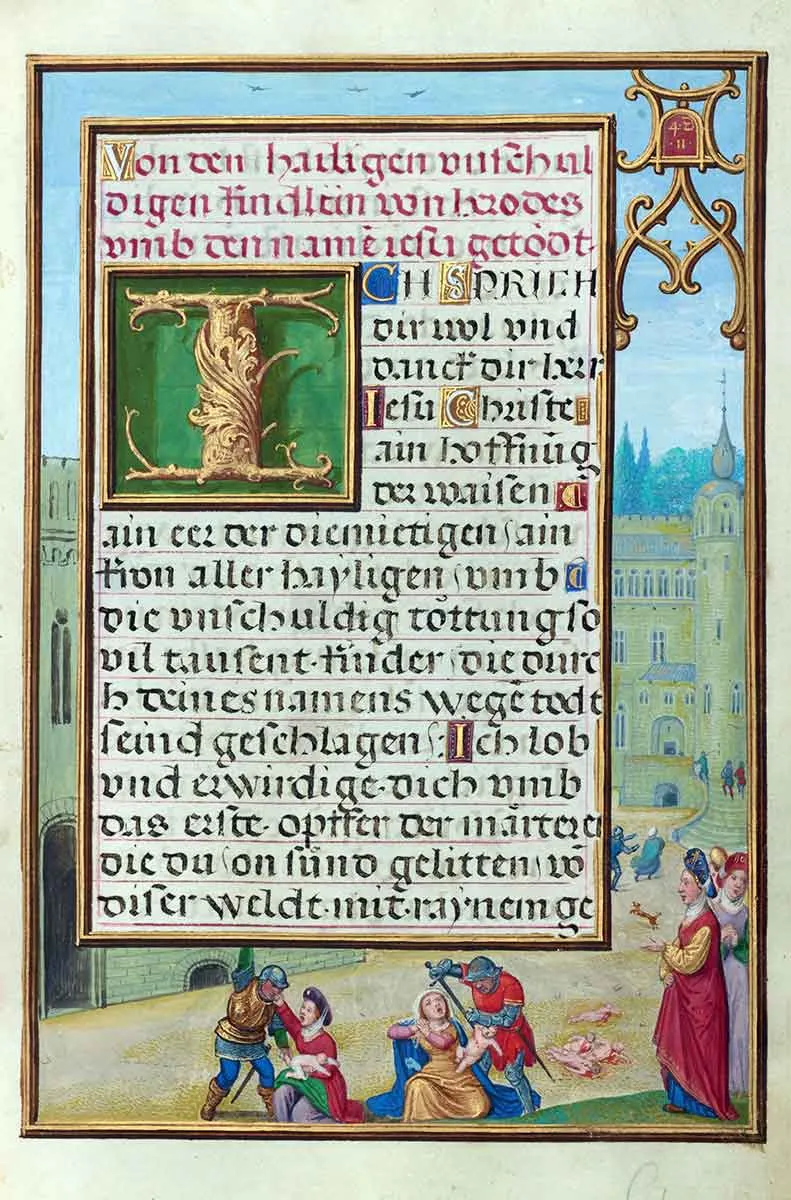 Von den hailigen vnschul
digen kindlein von herodes
vmb den namē iesu getödt.
ICH SPRICH
dir wol vnd
danck dir herr
Iesu Christe
ain hoffnūg
der waisen
ain eer der diemietigen, ain
kron aller hayligen, vmb
die vnschuldig tottung so
vil tausent kinder, die durc
h deines namens wegē todt
seind geschlagen: Ich lob
vnd erwirdige dich vmb
das erste opffer der märterer
die du on sünd gelitten, vō
diser weldt mit raynem ge